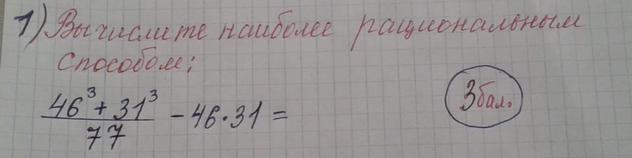 1) Вычислите наиболее рациональным
способом:
(46³ + 31³)/77 - 46·31 =
3 бал.